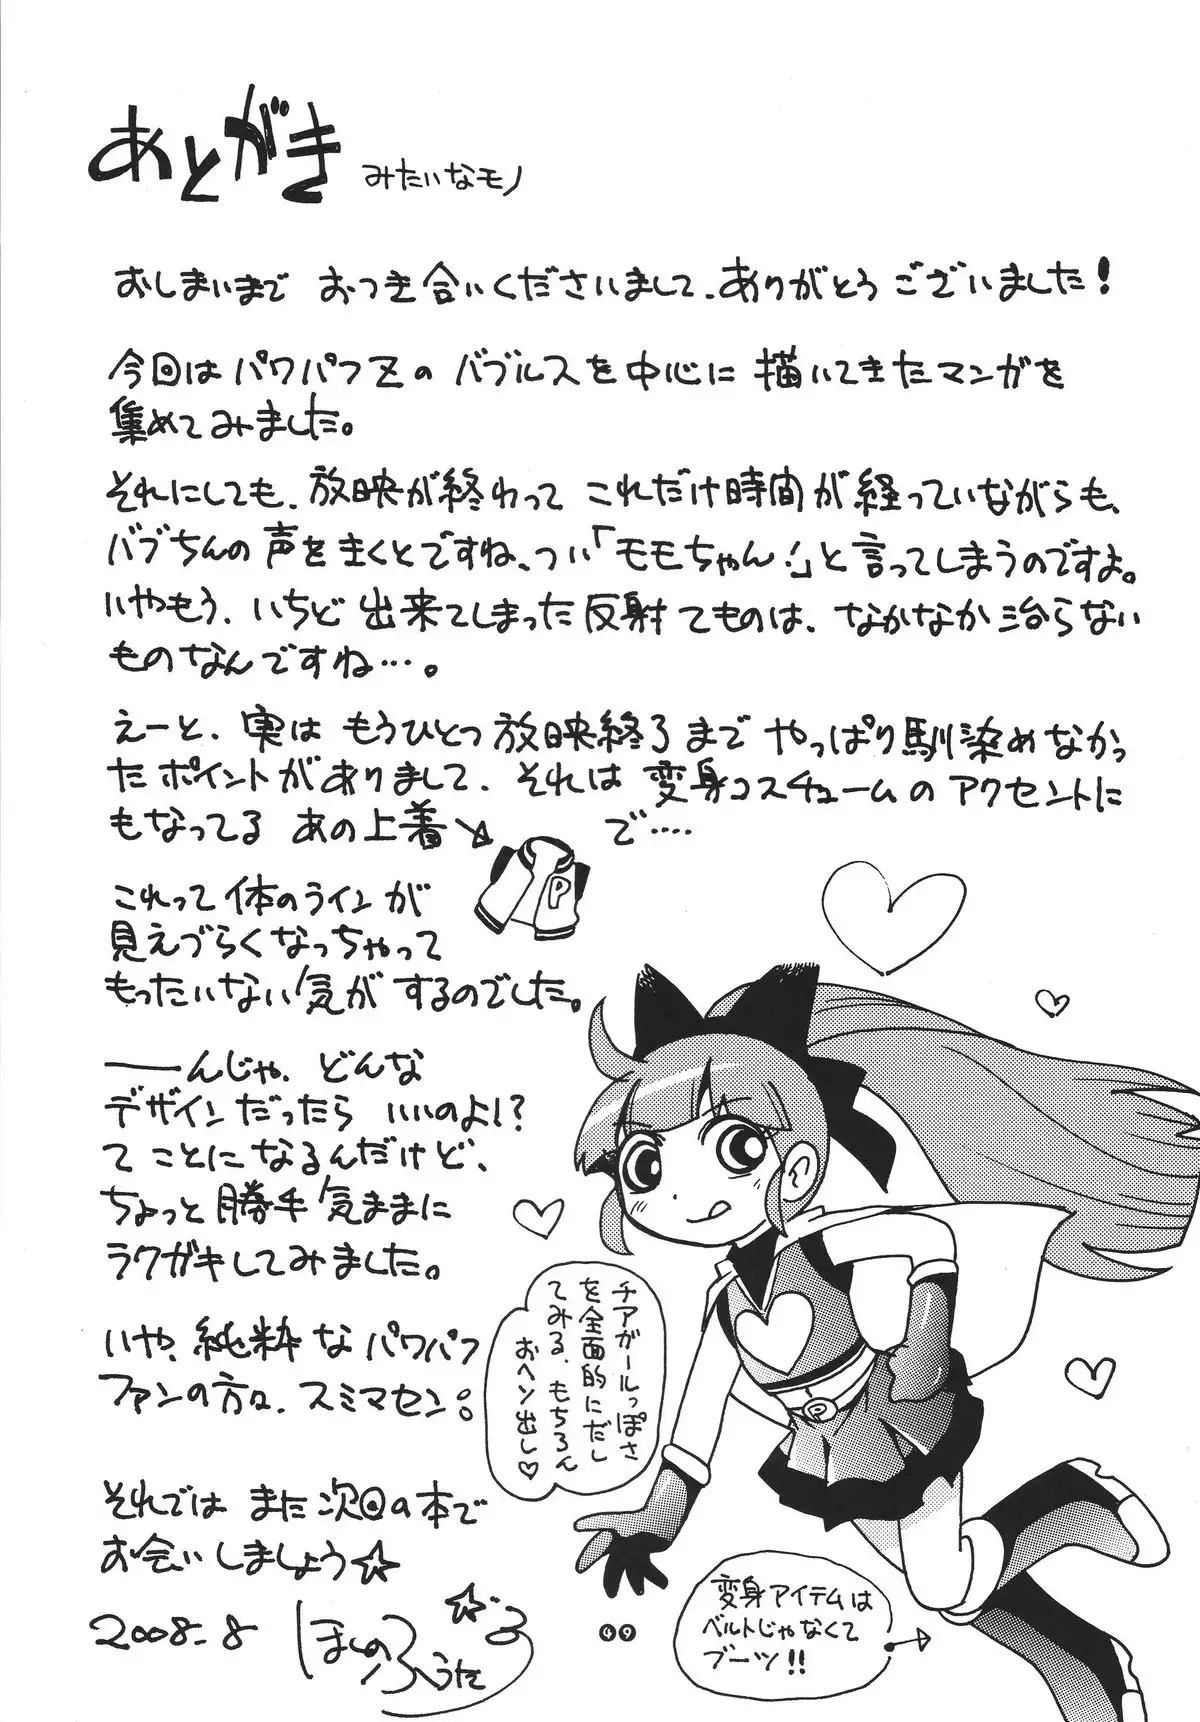 あとがき みたいなモノ
おしまいまで おつき合いくださいまして、ありがとうございました!
今回はパワパフZの バブルスを中心に描いてきたマンガを
集めてみました。
それにしても、放映が終わって これだけ時間が経っていながらも、
バブちんの声をきくとですね、つい「モモちゃん!」と言ってしまうのですよ。
いやもう、いちど出来てしまった反射てものは、なかなか治らない
ものなんですね…。
えーと、実は もうひとつ放映終了まで やっぱり馴染めなかっ
たポイントがありまして、それは変身コスチュームのアクセントに
もなってる あの上着 で‥‥
P
これって体のラインが
見えづらくなっちゃって
もったいない気がするのでした。
――んじゃ、どんな
デザインだったら いいのよ!?
て ことになるんだけど、
ちょっと勝手気ままに
ラクガキしてみました。
いや、純粋な パワパフ
ファンの方々、スミマセン。
それでは また次回の本で
お会いしましょう☆
2008.8 ほしのふうた
チアガールっぽさ
を全面的にだし
てみる、もちろん
おヘソ出し♡
P
変身アイテムは
ベルトじゃなくて
ブーツ!!
49